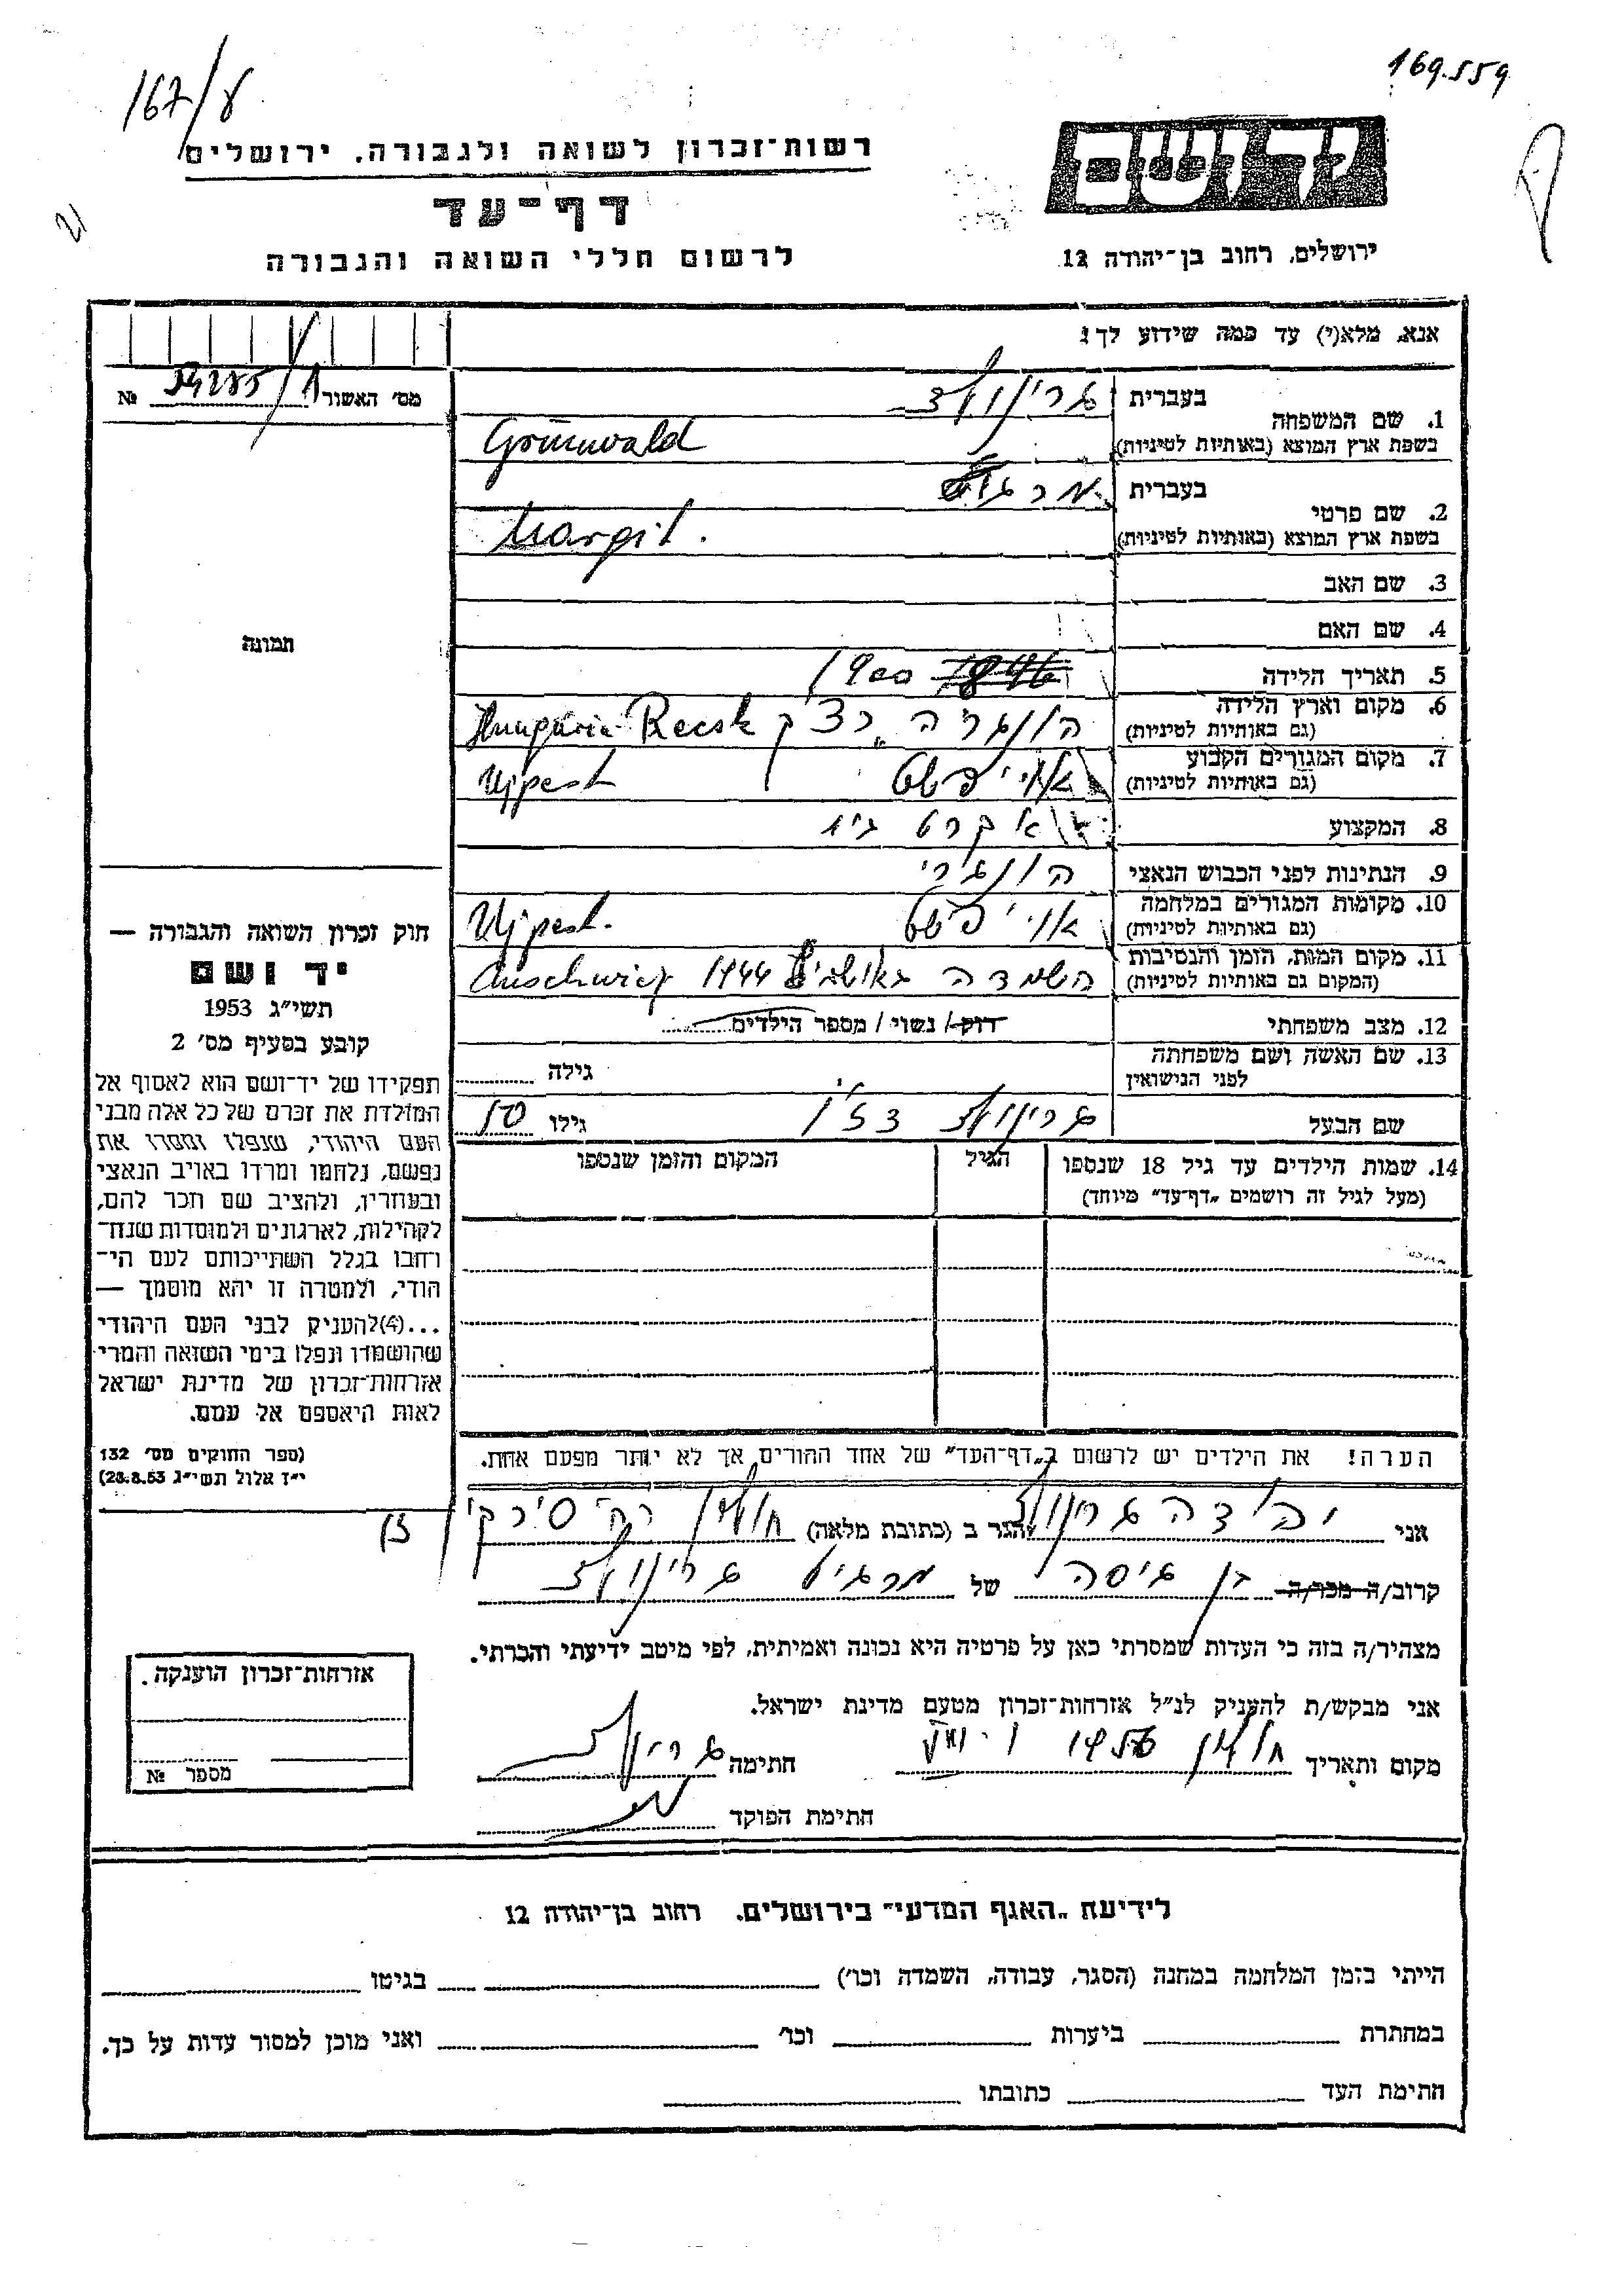 167/8
169.559
רשות־זכרון לשואה ולגבורה, ירושלים
דף־עד
לרשום חללי השואה והגבורה
יד ושם
ירושלים, רחוב בן־יהודה 12
אנא, מלא(י) עד כמה שידוע לך:
מס' האשור № 
1. שם המשפחה
בעברית גרינולד
בשפת ארץ המוצא (באותיות לטיניות) Grünwald
2. שם פרטי
בעברית מרגיט
בשפת ארץ המוצא (באותיות לטיניות) Margit.
3. שם האב
4. שם האם
5. תאריך הלידה 1896 1900
6. מקום וארץ הלידה הונגריה, רצ'ק Hungaria Recsk
(גם באותיות לטיניות)
7. מקום המגורים הקבוע אוי'פשט Ujpest
(גם באותיות לטיניות)
8. המקצוע
9. הנתינות לפני הכבוש הנאצי הונגרי
10. מקומות המגורים במלחמה אוי'פשט Ujpest.
(גם באותיות לטיניות)
11. מקום המות, הזמן והנסיבות השמדה באושביץ 1944 Auschwicz
(המקום גם באותיות לטיניות)
12. מצב משפחתי רווק / נשוי / מספר הילדים
13. שם האשה ושם משפחתה
לפני הנישואין
גילה
שם הבעל גרינולד גילו 50
14. שמות הילדים עד גיל 18 שנספו
(מעל לגיל זה רושמים „דף־עד" מיוחד)
הגיל
המקום והזמן שנספו
תמונה
חוק זכרון השואה והגבורה —
יד ושם
תשי"ג 1953
קובע בסעיף מס' 2
תפקידו של יד־ושם הוא לאסוף אל
המולדת את זכרם של כל אלה מבני
העם היהודי, שנפלו ומסרו את
נפשם, נלחמו ומרדו באויב הנאצי
ובעוזריו, ולהציב שם וזכר להם,
לקהילות, לארגונים ולמוסדות שנח־
רבו בגלל השתייכותם לעם הי־
הודי, ולמטרה זו יהא מוסמך —
...(4) להעניק לבני העם היהודי
שהושמדו ונפלו בימי השואה והמרי
אזרחות־זכרון של מדינת ישראל
לאות היאספם אל עמם.
(ספר החוקים מס' 132
י"ז אלול תשי"ג 28.8.53)
הערה! את הילדים יש לרשום ב„דף־העד" של אחד ההורים אך לא יותר מפעם אחת.
אני יהודה גרינולד הגר ב (כתובת מלאה) חולון רח' סירקין
קרוב/ה מכר/ה בן גיסה של מרגיט גרינולד
מצהיר/ה בזה כי העדות שמסרתי כאן על פרטיה היא נכונה ואמיתית, לפי מיטב ידיעתי והכרתי.
אני מבקש/ת להעניק לנ"ל אזרחות־זכרון מטעם מדינת ישראל.
מקום ותאריך חולון 1956 חתימה גרינולד
חתימת הפוקד
אזרחות־זכרון הוענקה.
מספר №
לידיעת „האגף המדעי" בירושלים, רחוב בן־יהודה 12
הייתי בזמן המלחמה במחנה (הסגר, עבודה, השמדה וכו') בגיטו
במחתרת ביערות וכו' ואני מוכן למסור עדות על כך.
חתימת העד כתובתו